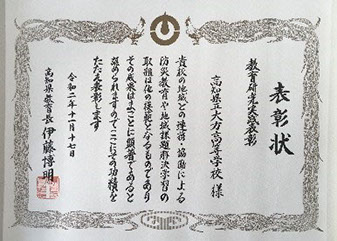 表彰状
教育研究実践表彰
高知県立大方高等学校 様
貴校の地域との連携・協働による
防災教育や地域課題解決学習の
取組は他の模範となるものであり
その成果はまことに顕著であると
認められますのでここにその功績を
たたえ表彰します
令和二年十一月十七日
高知県教育長 伊藤博明